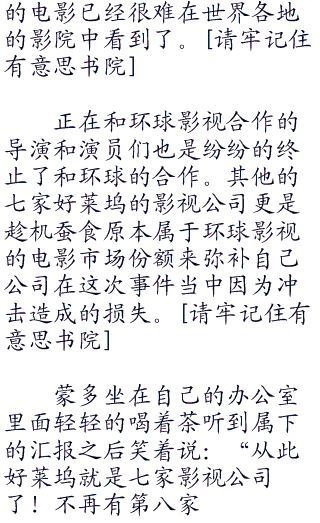 的电影已经很难在世界各地
的影院中看到了。[请牢记住
有意思书院]
正在和环球影视合作的
导演和演员们也是纷纷的终
止了和环球的合作。其他的
七家好菜坞的影视公司更是
趁机蚕食原本属于环球影视
的电影市场份额来弥补自己
公司在这次事件当中因为冲
击造成的损失。[请牢记住有
意思书院]
蒙多坐在自己的办公室
里面轻轻的喝着茶听到属下
的汇报之后笑着说：“从此
好菜坞就是七家影视公司
了！不再有第八家